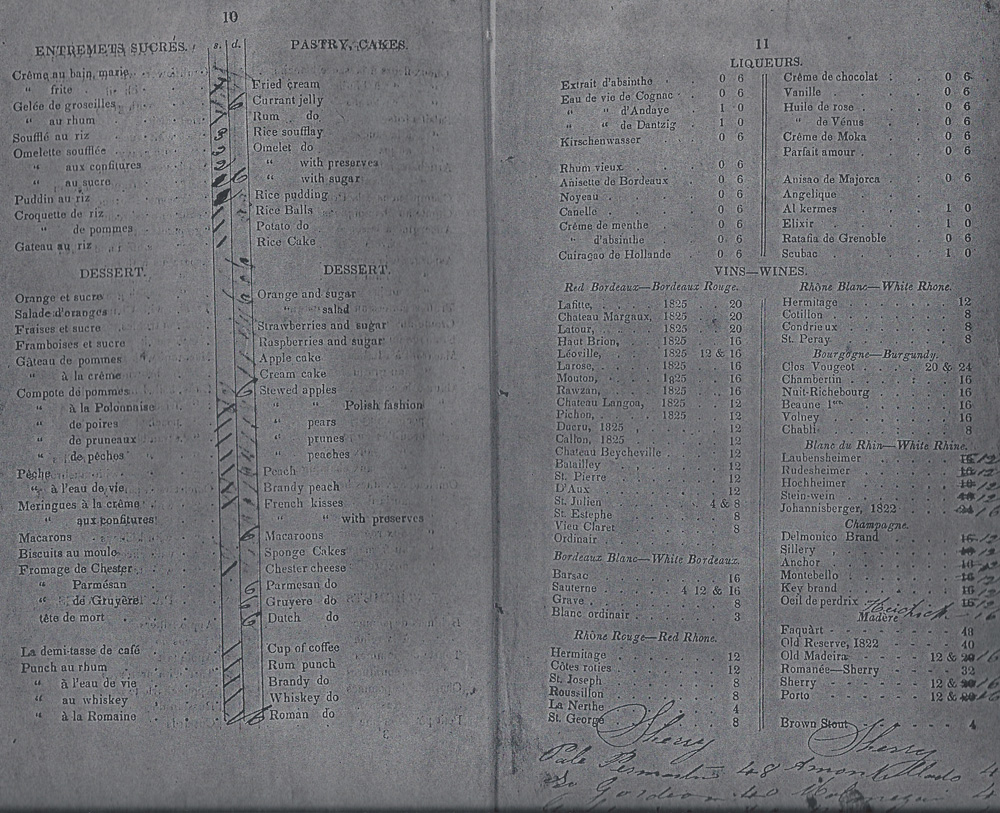 10
ENTREMETS SUCRÉS. s. d. PASTRY, CAKES.
Crême au bain, marie
" frite Fried cream
Gelée de groseilles 6 Currant jelly
" au rhum Rum do
Soufflé au riz Rice soufflay
Omelette soufflée Omelet do
" aux confitures " with preserves
" au sucre 6 " with sugar
Puddin au riz Rice pudding
Croquette de riz Rice Balls
" de pommes Potato do
Gateau au riz Rice Cake
DESSERT. DESSERT.
Orange et sucre Orange and sugar
Salade d'oranges " salad
Fraises et sucre Strawberries and sugar
Framboises et sucre Raspberries and sugar
Gâteau de pommes Apple cake
" à la crême Cream cake
Compote de pommes 6 Stewed apples
" à la Polonnaise " " Polish fashion
" de poires " pears
" de pruneaux " prunes
" de pêches " peaches
Pêche Peach
" à l'eau de vie Brandy peach
Meringues à la crême French kisses
" aux confitures " " with preserves
Macarons Macaroons
Biscuits au moule Sponge Cakes
Fromage de Chester Chester cheese
" Parmésan Parmesan do
" de Gruyère Gruyere do
tête de mort Dutch do
La demi-tasse de café Cup of coffee
Punch au rhum Rum punch
" à l'eau de vie Brandy do
" au whiskey Whiskey do
" à la Romaine 6 Roman do
11
LIQUEURS.
Extrait d'absinthe 0 6
Eau de vie de Cognac 0 6
" " d'Andaye 1 0
" " de Dantzig 1 0
Kirschenwasser 0 6
Rhum vieux 0 6
Anisette de Bordeaux 0 6
Noyeau 0 6
Canelle 0 6
Crême de menthe 0 6
" d'absinthe 0 6
Cuiraçao de Hollande 0 6
Crême de chocolat 0 6
Vanille 0 6
Huile de rose 0 6
" de Vénus 0 6
Crême de Moka 0 6
Parfait amour 0 6
Anisao de Majorca 0 6
Angelique
Al kermes 1 0
Elixir 1 0
Ratafia de Grenoble 0 6
Scubac 1 0
VINS—WINES.
Red Bordeaux—Bordeaux Rouge.
Lafitte, 1825 20
Chateau Margaux, 1825 20
Latour, 1825 20
Haut Brion, 1825 16
Léoville, 1825 12 & 16
Larose, 1825 16
Mouton, 1825 16
Rawzan, 1825 16
Chateau Langoa, 1825 12
Pichon, 1825 12
Ducru, 1825 12
Callon, 1825 12
Chateau Beycheville 12
Batailley 12
St. Pierre 12
D'Aux 12
St. Julien 4 & 8
St. Estephe 8
Vieu Claret 8
Ordinair
Bordeaux Blanc—White Bordeaux.
Barsac 16
Sauterne 4 12 & 16
Grave 8
Blanc ordinair 3
Rhône Rouge—Red Rhône.
Hermitage 12
Côtes roties 12
St. Joseph 8
Roussillon 8
La Nerthe 4
St. George 8
Rhône Blanc—White Rhone.
Hermitage 12
Cotillon 8
Condrieux 8
St. Peray 8
Bourgogne—Burgundy.
Clos Vougeot 20 & 24
Chambertin 16
Nuit-Richebourg 16
Beaune 1ere 16
Volney 16
Chabli 8
Blanc du Rhin—White Rhine.
Laubensheimer
Rudesheimer
Hochheimer
Stein-wein
Johannisberger, 1822
Champagne.
Delmonico Brand
Sillery
Anchor
Montebello
Key brand
Oeil de perdrix
Madère
Faquart 48
Old Reserve, 1822 40
Old Madeira 12 &
Romanée—Sherry 32
Sherry 12 &
Porto 12 &
Brown Stout 4
Sherry Sherry
Pale 48 4
Do Gordon 40